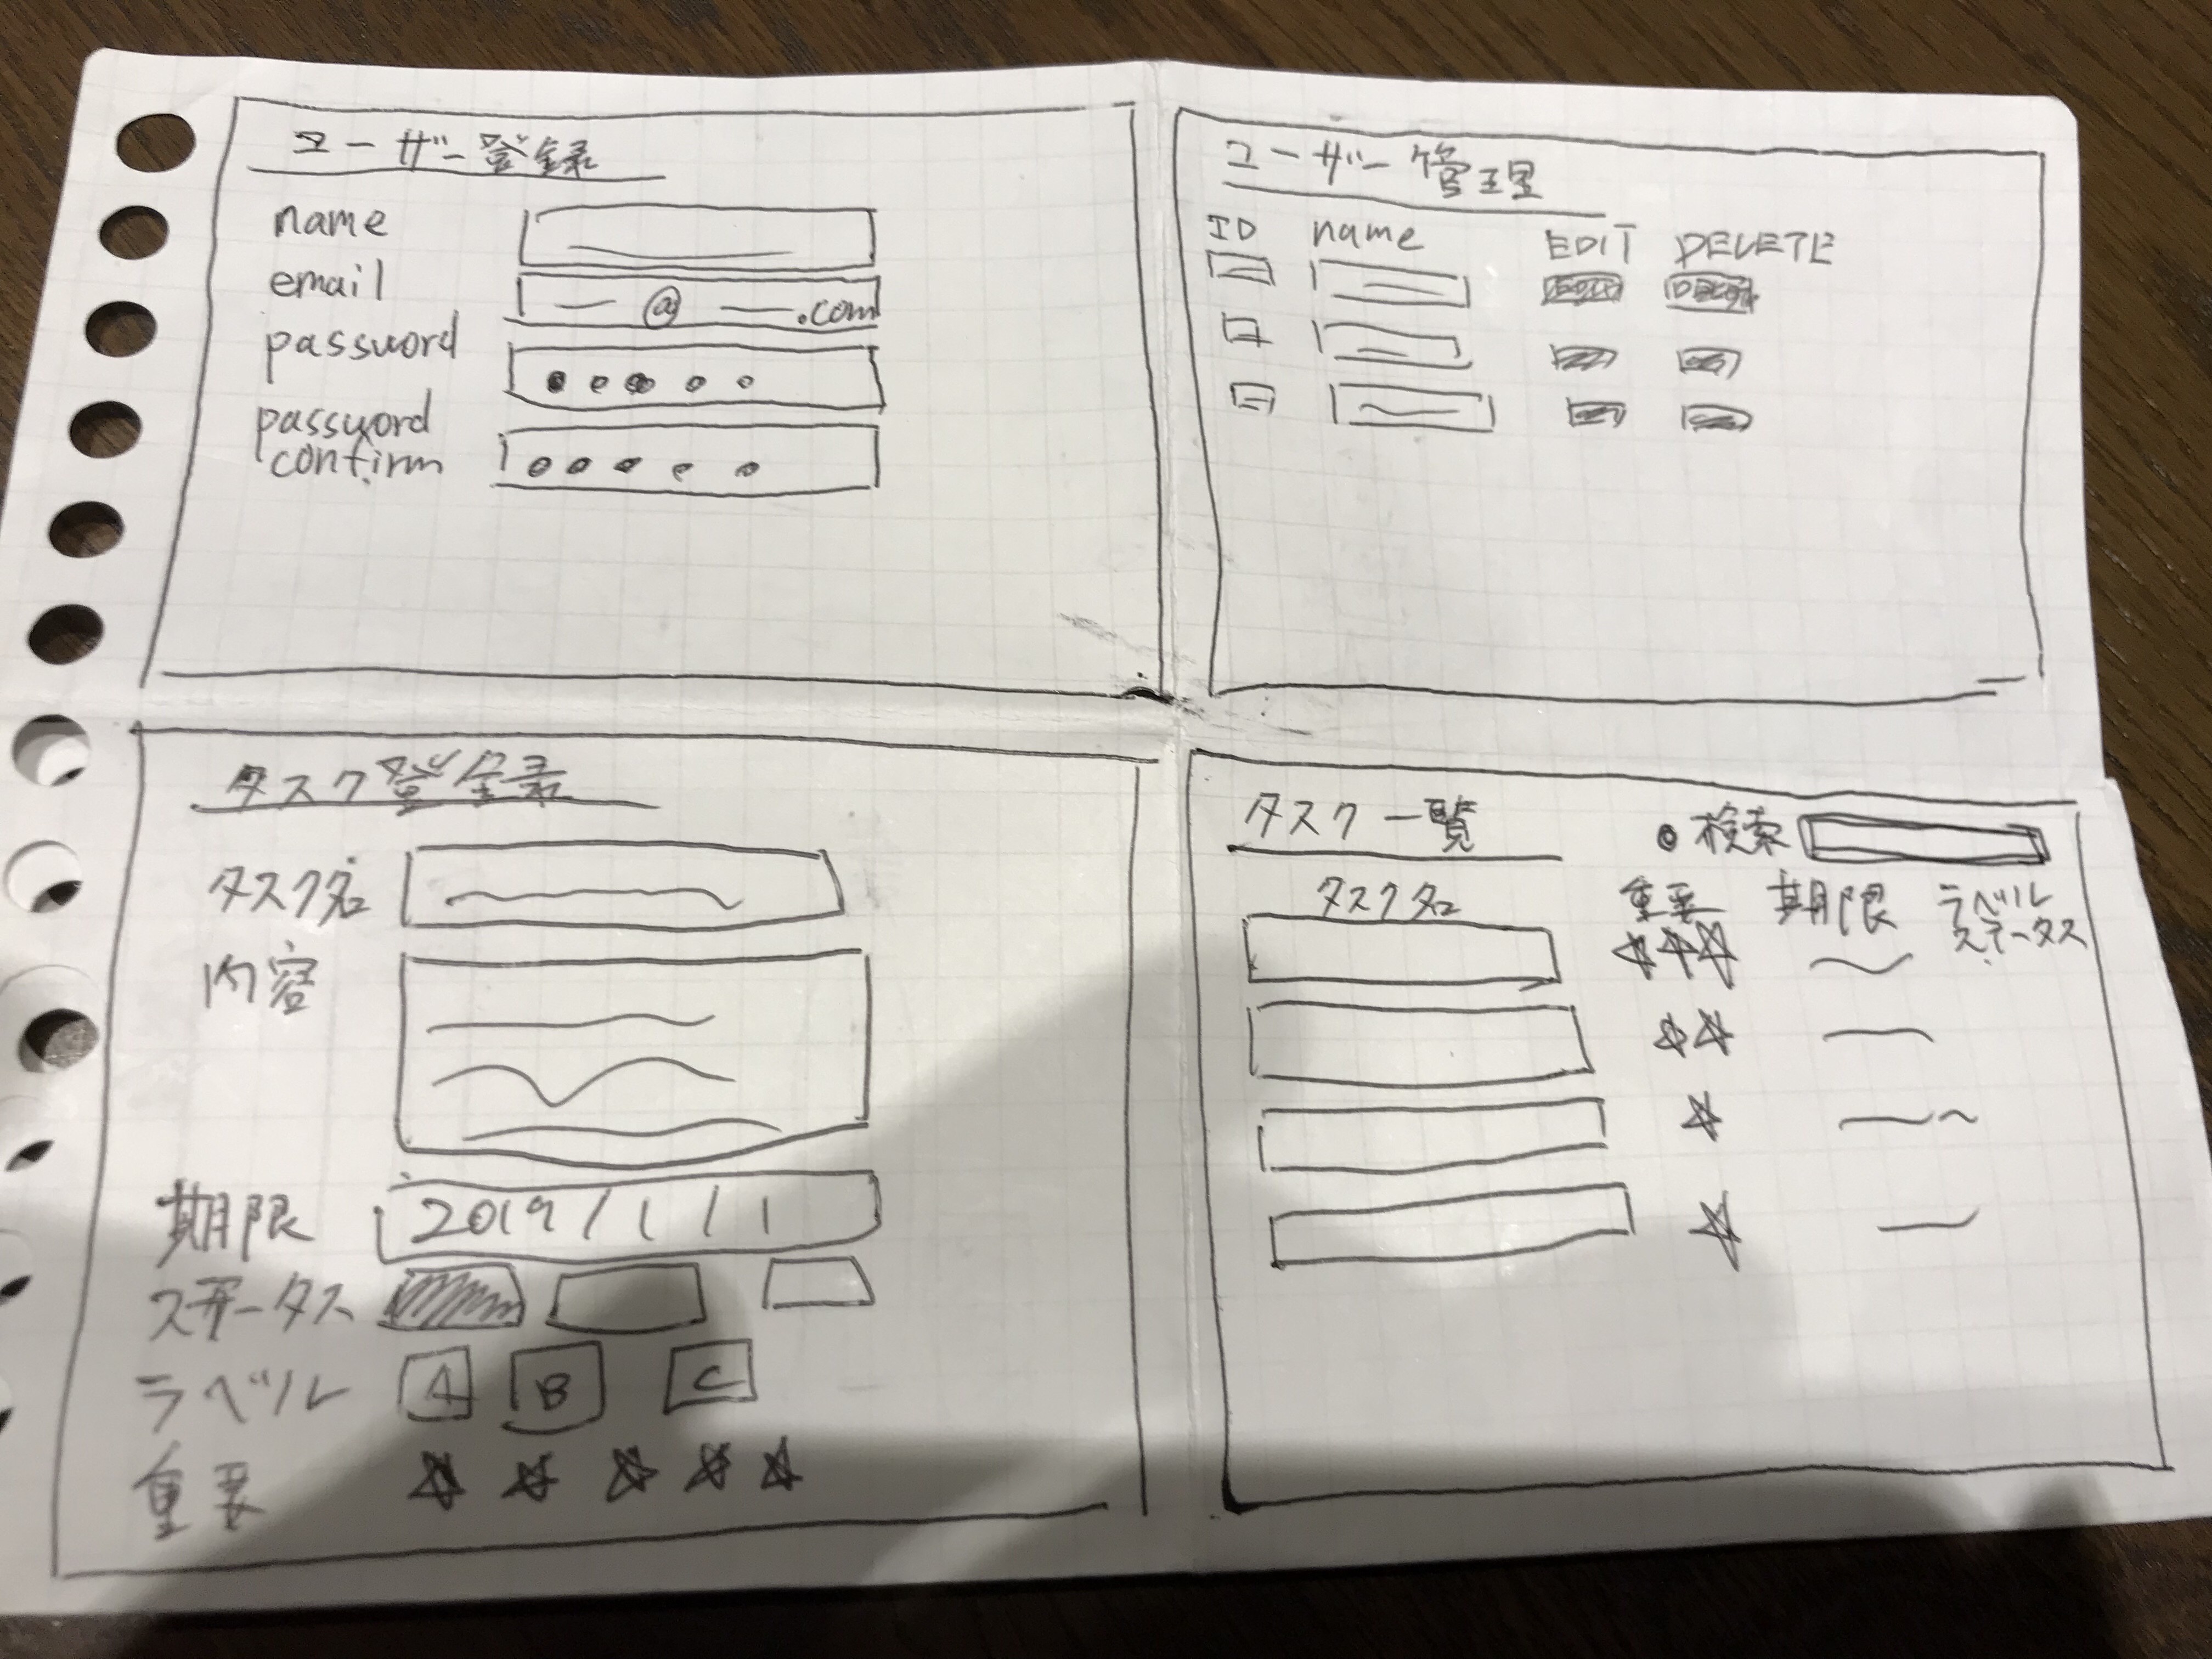 ユーザー登録
name
email @ .com
password
password
confirm
ユーザー管理
ID name EDIT DELETE
タスク登録
タスク名
内容
期限 2019/1/1
ステータス
ラベル A B C
重要
タスク一覧 検索
タスク名 重要 期限 ラベル
ステータス